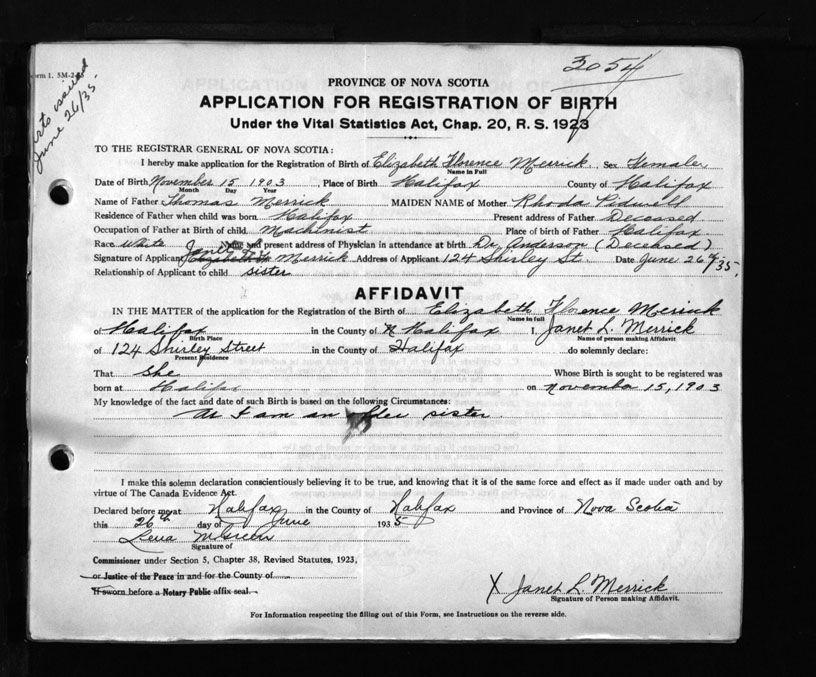 orm 1. 5M-2-35
3054
certs issued
June 26/35.
PROVINCE OF NOVA SCOTIA
APPLICATION FOR REGISTRATION OF BIRTH
Under the Vital Statistics Act, Chap. 20, R. S. 1923
TO THE REGISTRAR GENERAL OF NOVA SCOTIA:
I hereby make application for the Registration of Birth of Elizabeth Florence Merrick. Sex Female
Name in Full
Date of Birth November 15 1903, Place of Birth Halifax County of Halifax
Month Day Year
Name of Father Thomas Merrick MAIDEN NAME of Mother Rhoda Pidwell
Residence of Father when child was born Halifax Present address of Father Deceased
Occupation of Father at Birth of child Machinist Place of birth of Father Halifax
Race White Name and present address of Physician in attendance at birth Dr. Anderson (Deceased)
Janet L.
Signature of Applicant Elizabeth F. Merrick Address of Applicant 124 Shirley St. Date June 26th/35.
Relationship of Applicant to child sister
AFFIDAVIT
IN THE MATTER of the application for the Registration of the Birth of Elizabeth Florence Merrick
Name in full
of Halifax in the County of Halifax I, Janet L. Merrick
Birth Place Name of person making Affidavit
of 124 Shirley Street in the County of Halifax do solemnly declare:
Present Residence
That She Whose Birth is sought to be registered was
born at Halifax on November 15, 1903
My knowledge of the fact and date of such Birth is based on the following Circumstances:
As I am an older sister.
I make this solemn declaration conscientiously believing it to be true, and knowing that it is of the same force and effect as if made under oath and by
virtue of The Canada Evidence Act.
Declared before me at Halifax in the County of Halifax and Province of Nova Scotia
this 26th day of June 1935
Lena McGreen
Signature of
Commissioner under Section 5, Chapter 38, Revised Statutes, 1923,
or Justice of the Peace in and for the County of
If sworn before a Notary Public affix seal.
X Janet L. Merrick
Signature of Person making Affidavit.
For Information respecting the filling out of this Form, see Instructions on the reverse side.